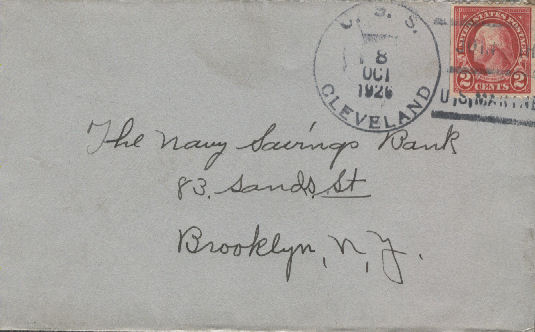 U. S. S.
8
OCT
1926
CLEVELAND
UNITED STATES POSTAGE
2 CENTS 2
U.S. MARINE
The Navy Savings Bank
83. Sands St
Brooklyn, N, Y.